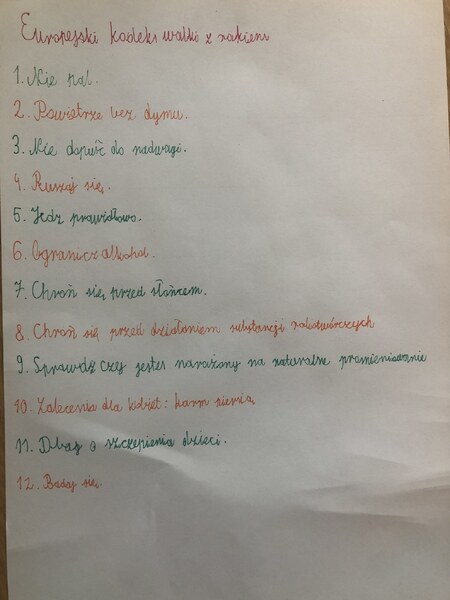 Europejski kodeks walki z rakiem
1. Nie pal.
2. Powietrze bez dymu.
3. Nie dopuść do nadwagi.
4. Ruszaj się.
5. Jedz prawidłowo.
6. Ogranicz alkohol.
7. Chroń się przed słońcem.
8. Chroń się przed działaniem substancji rakotwórczych
9. Sprawdź czy jesteś narażony na naturalne promieniowanie
10. Zalecenia dla kobiet: karm piersią
11. Dbaj o szczepienia dzieci.
12. Badaj się.